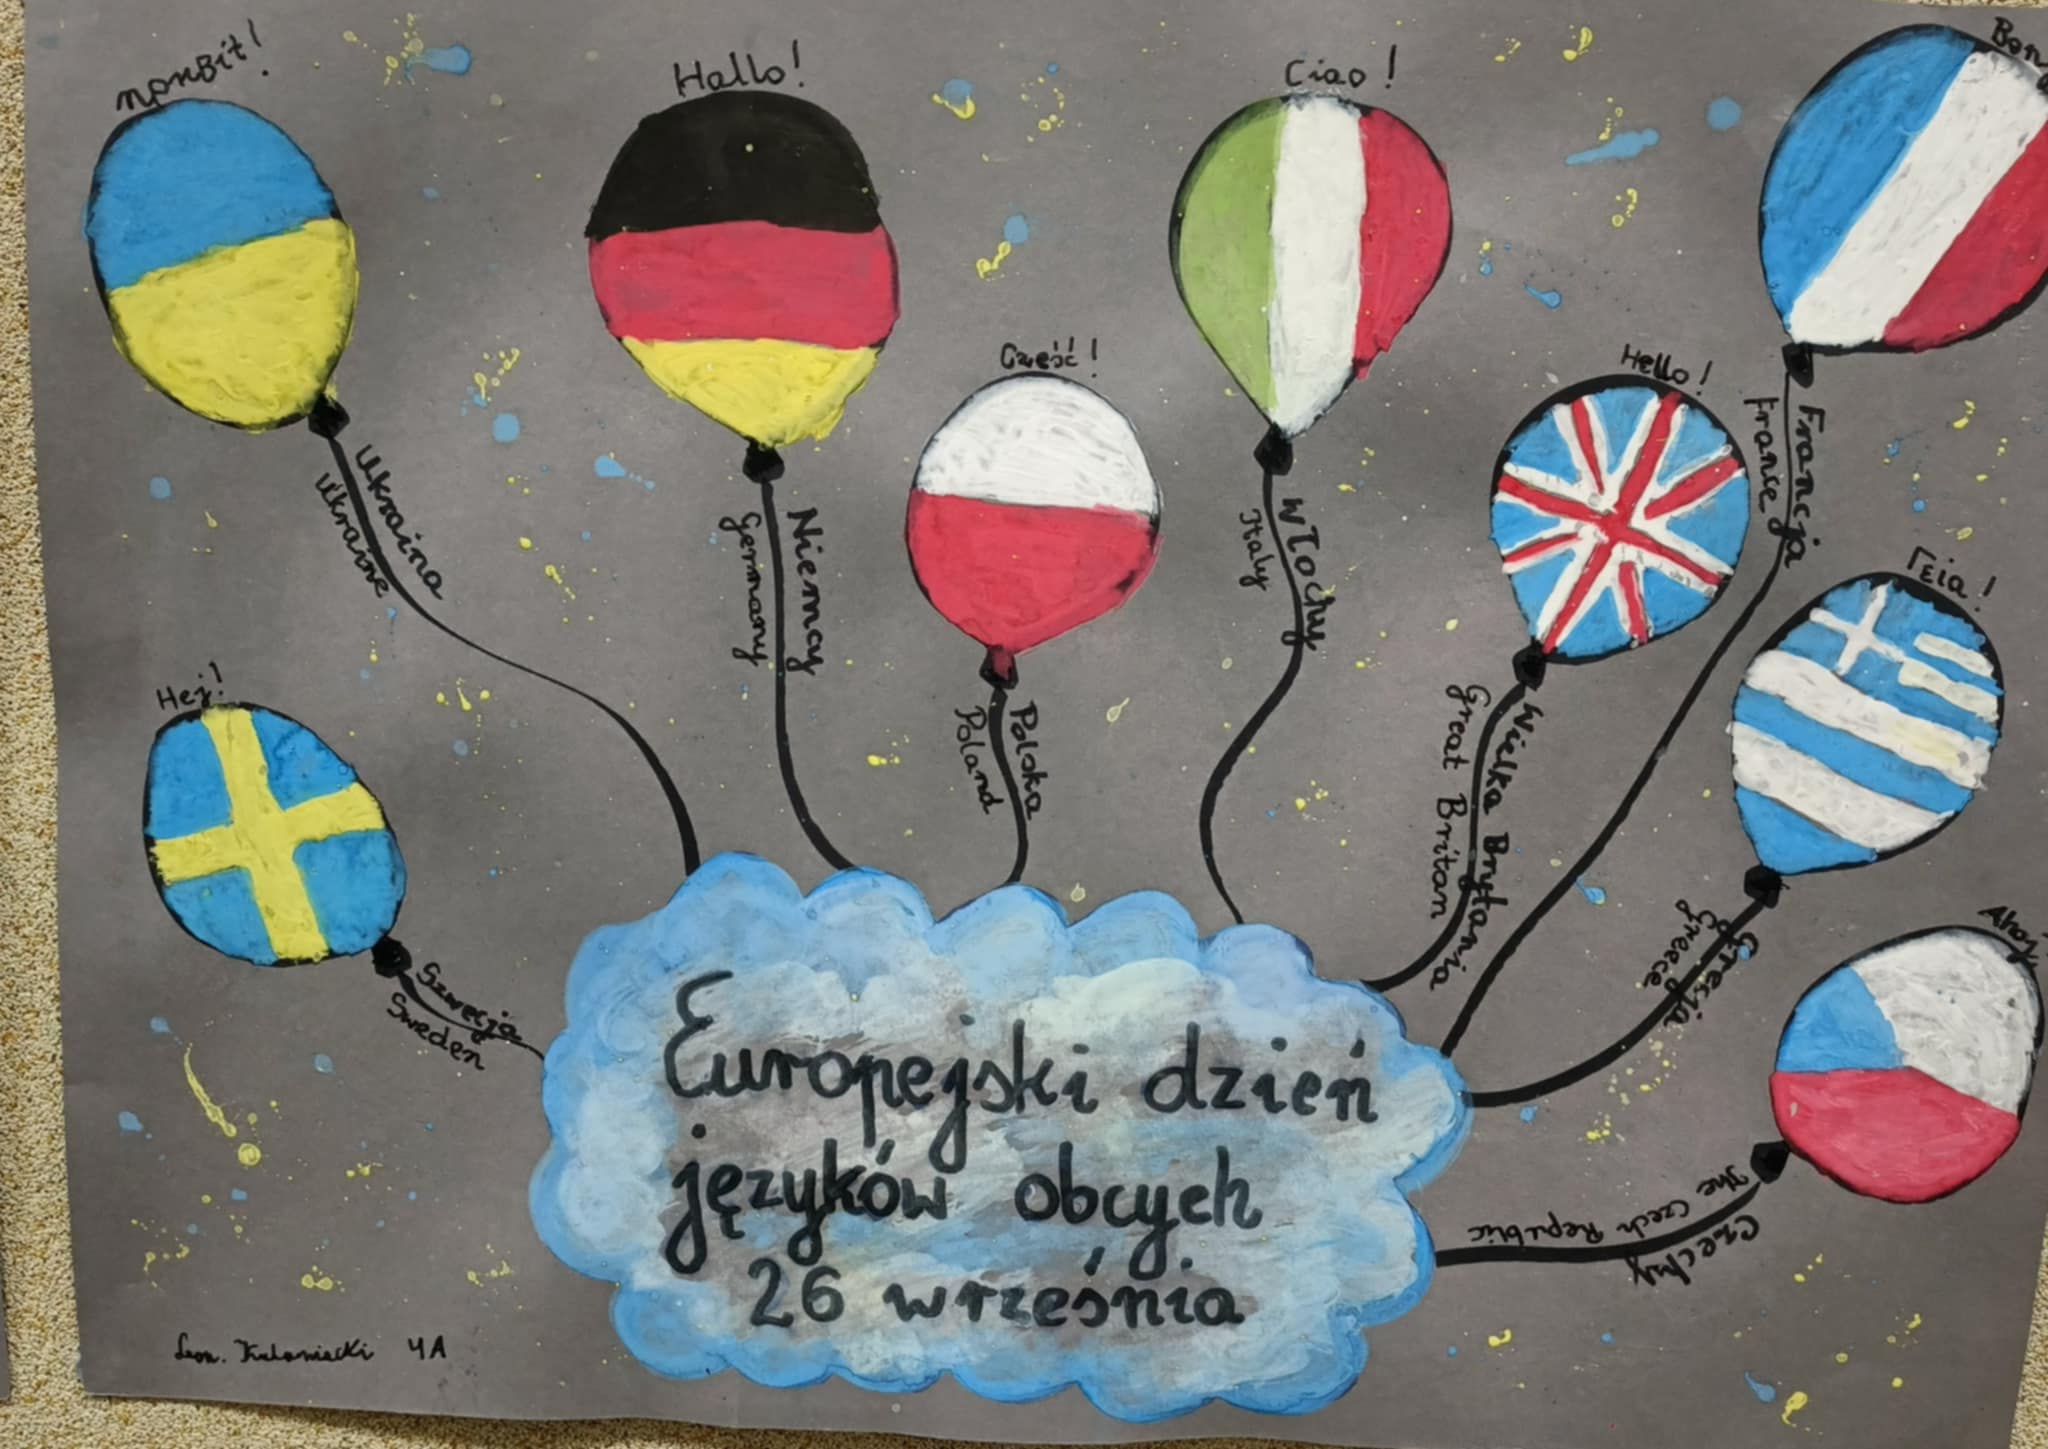 привіт!
Hallo!
Ciao!
Cześć!
Hello!
Γεια!
Hej!
Ukraina
Ukraine
Niemcy
Germany
Polska
Poland
Włochy
Italy
Wielka Brytania
Great Britan
Francja
France
Grecja
Greece
Ahoj
Czechy
The Czech Republic
Szwecja
Sweden
Europejski dzień
języków obcych
26 września
4A